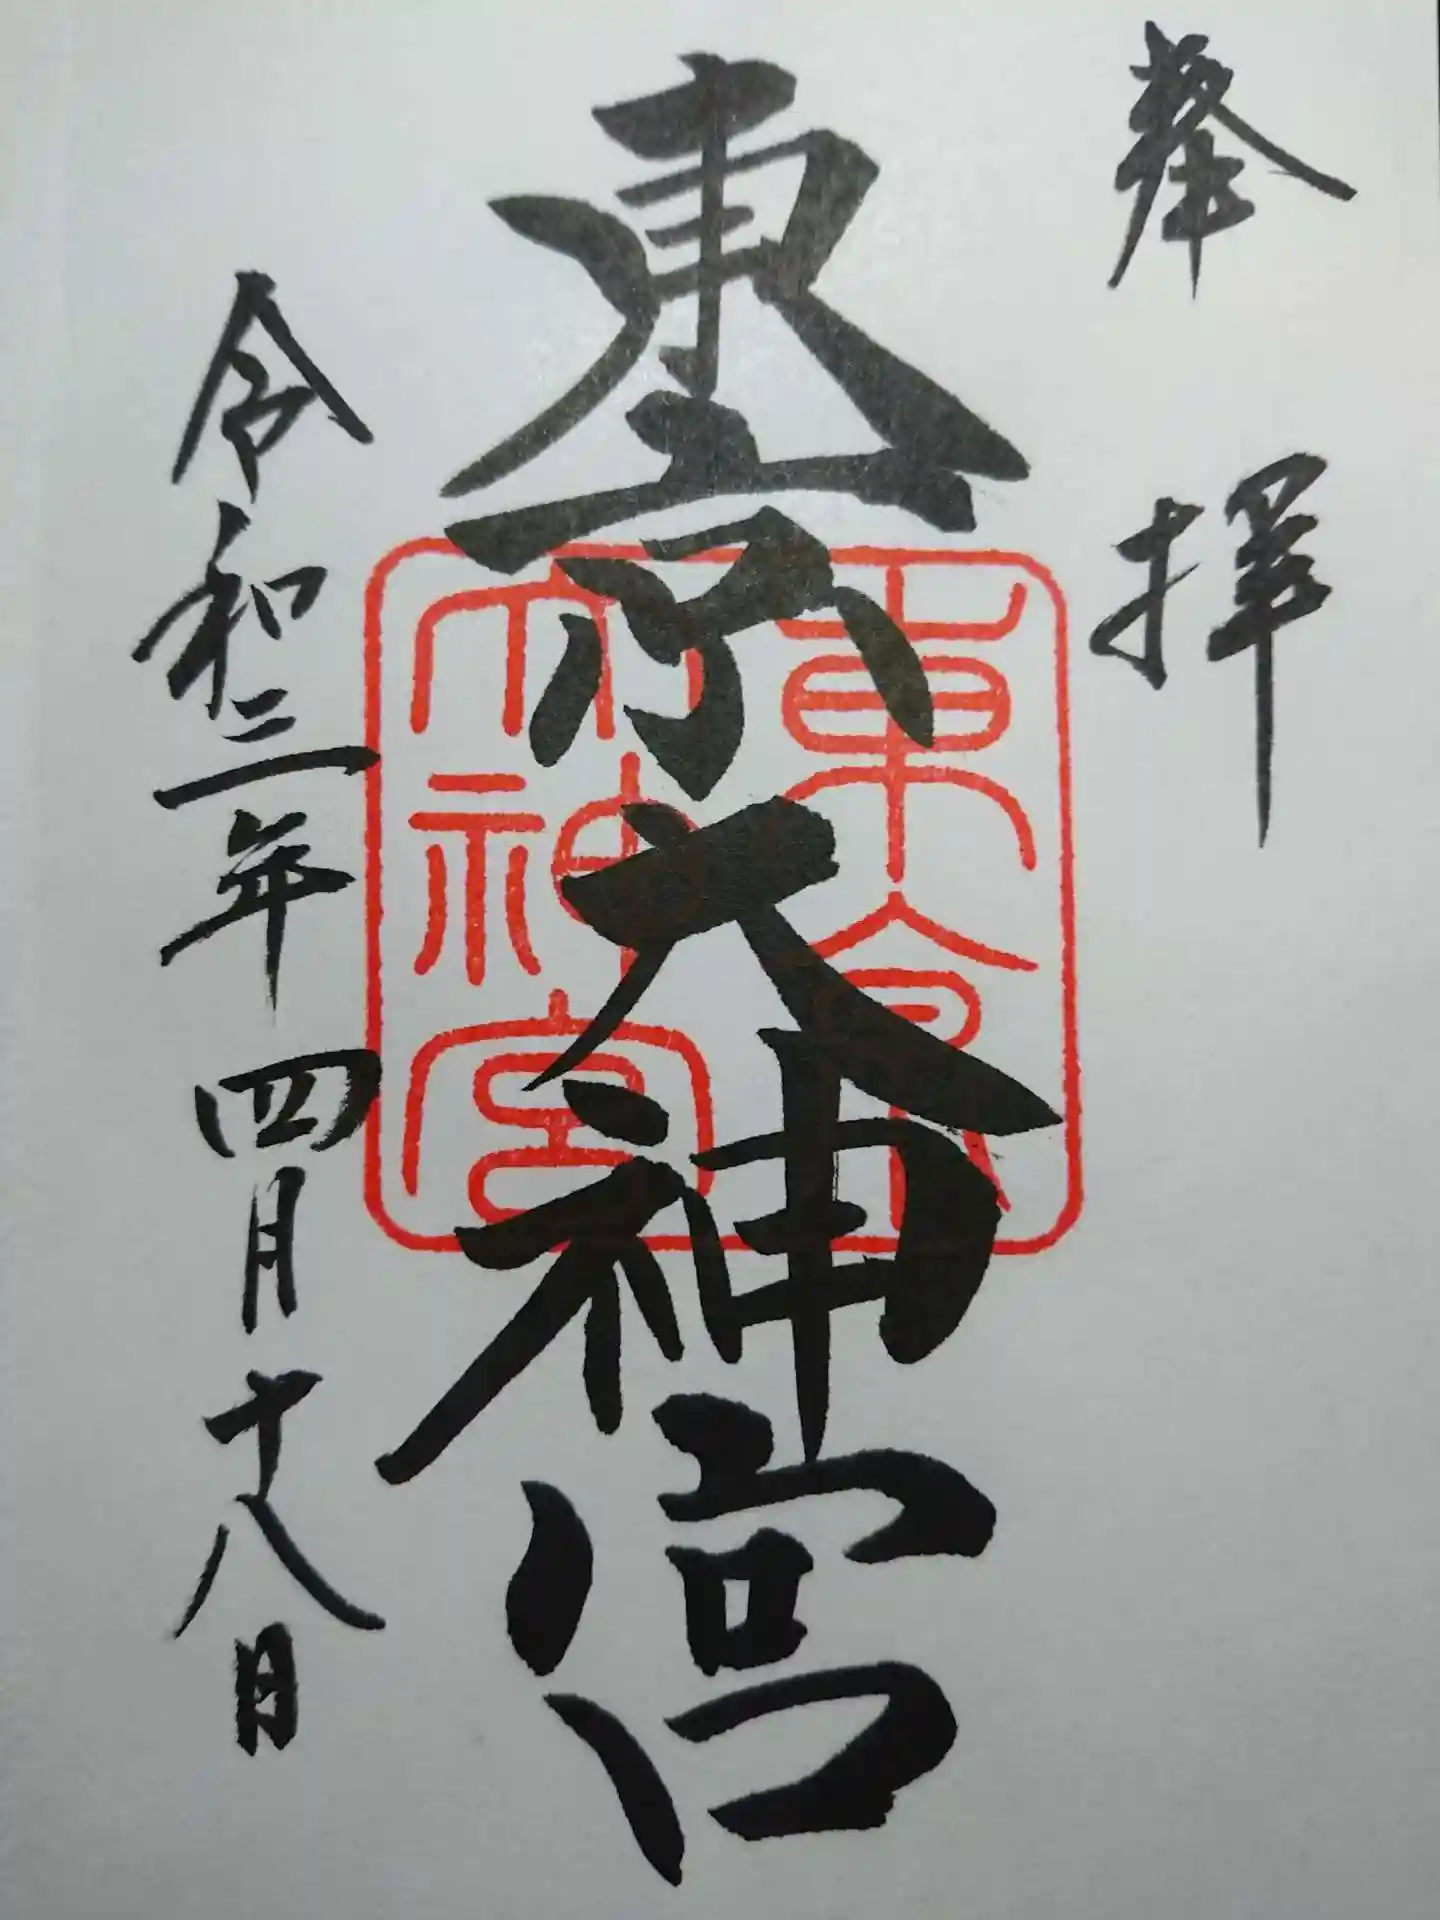 奉拝
東京大神宮
東京
大神宮
令和三年四月十八日